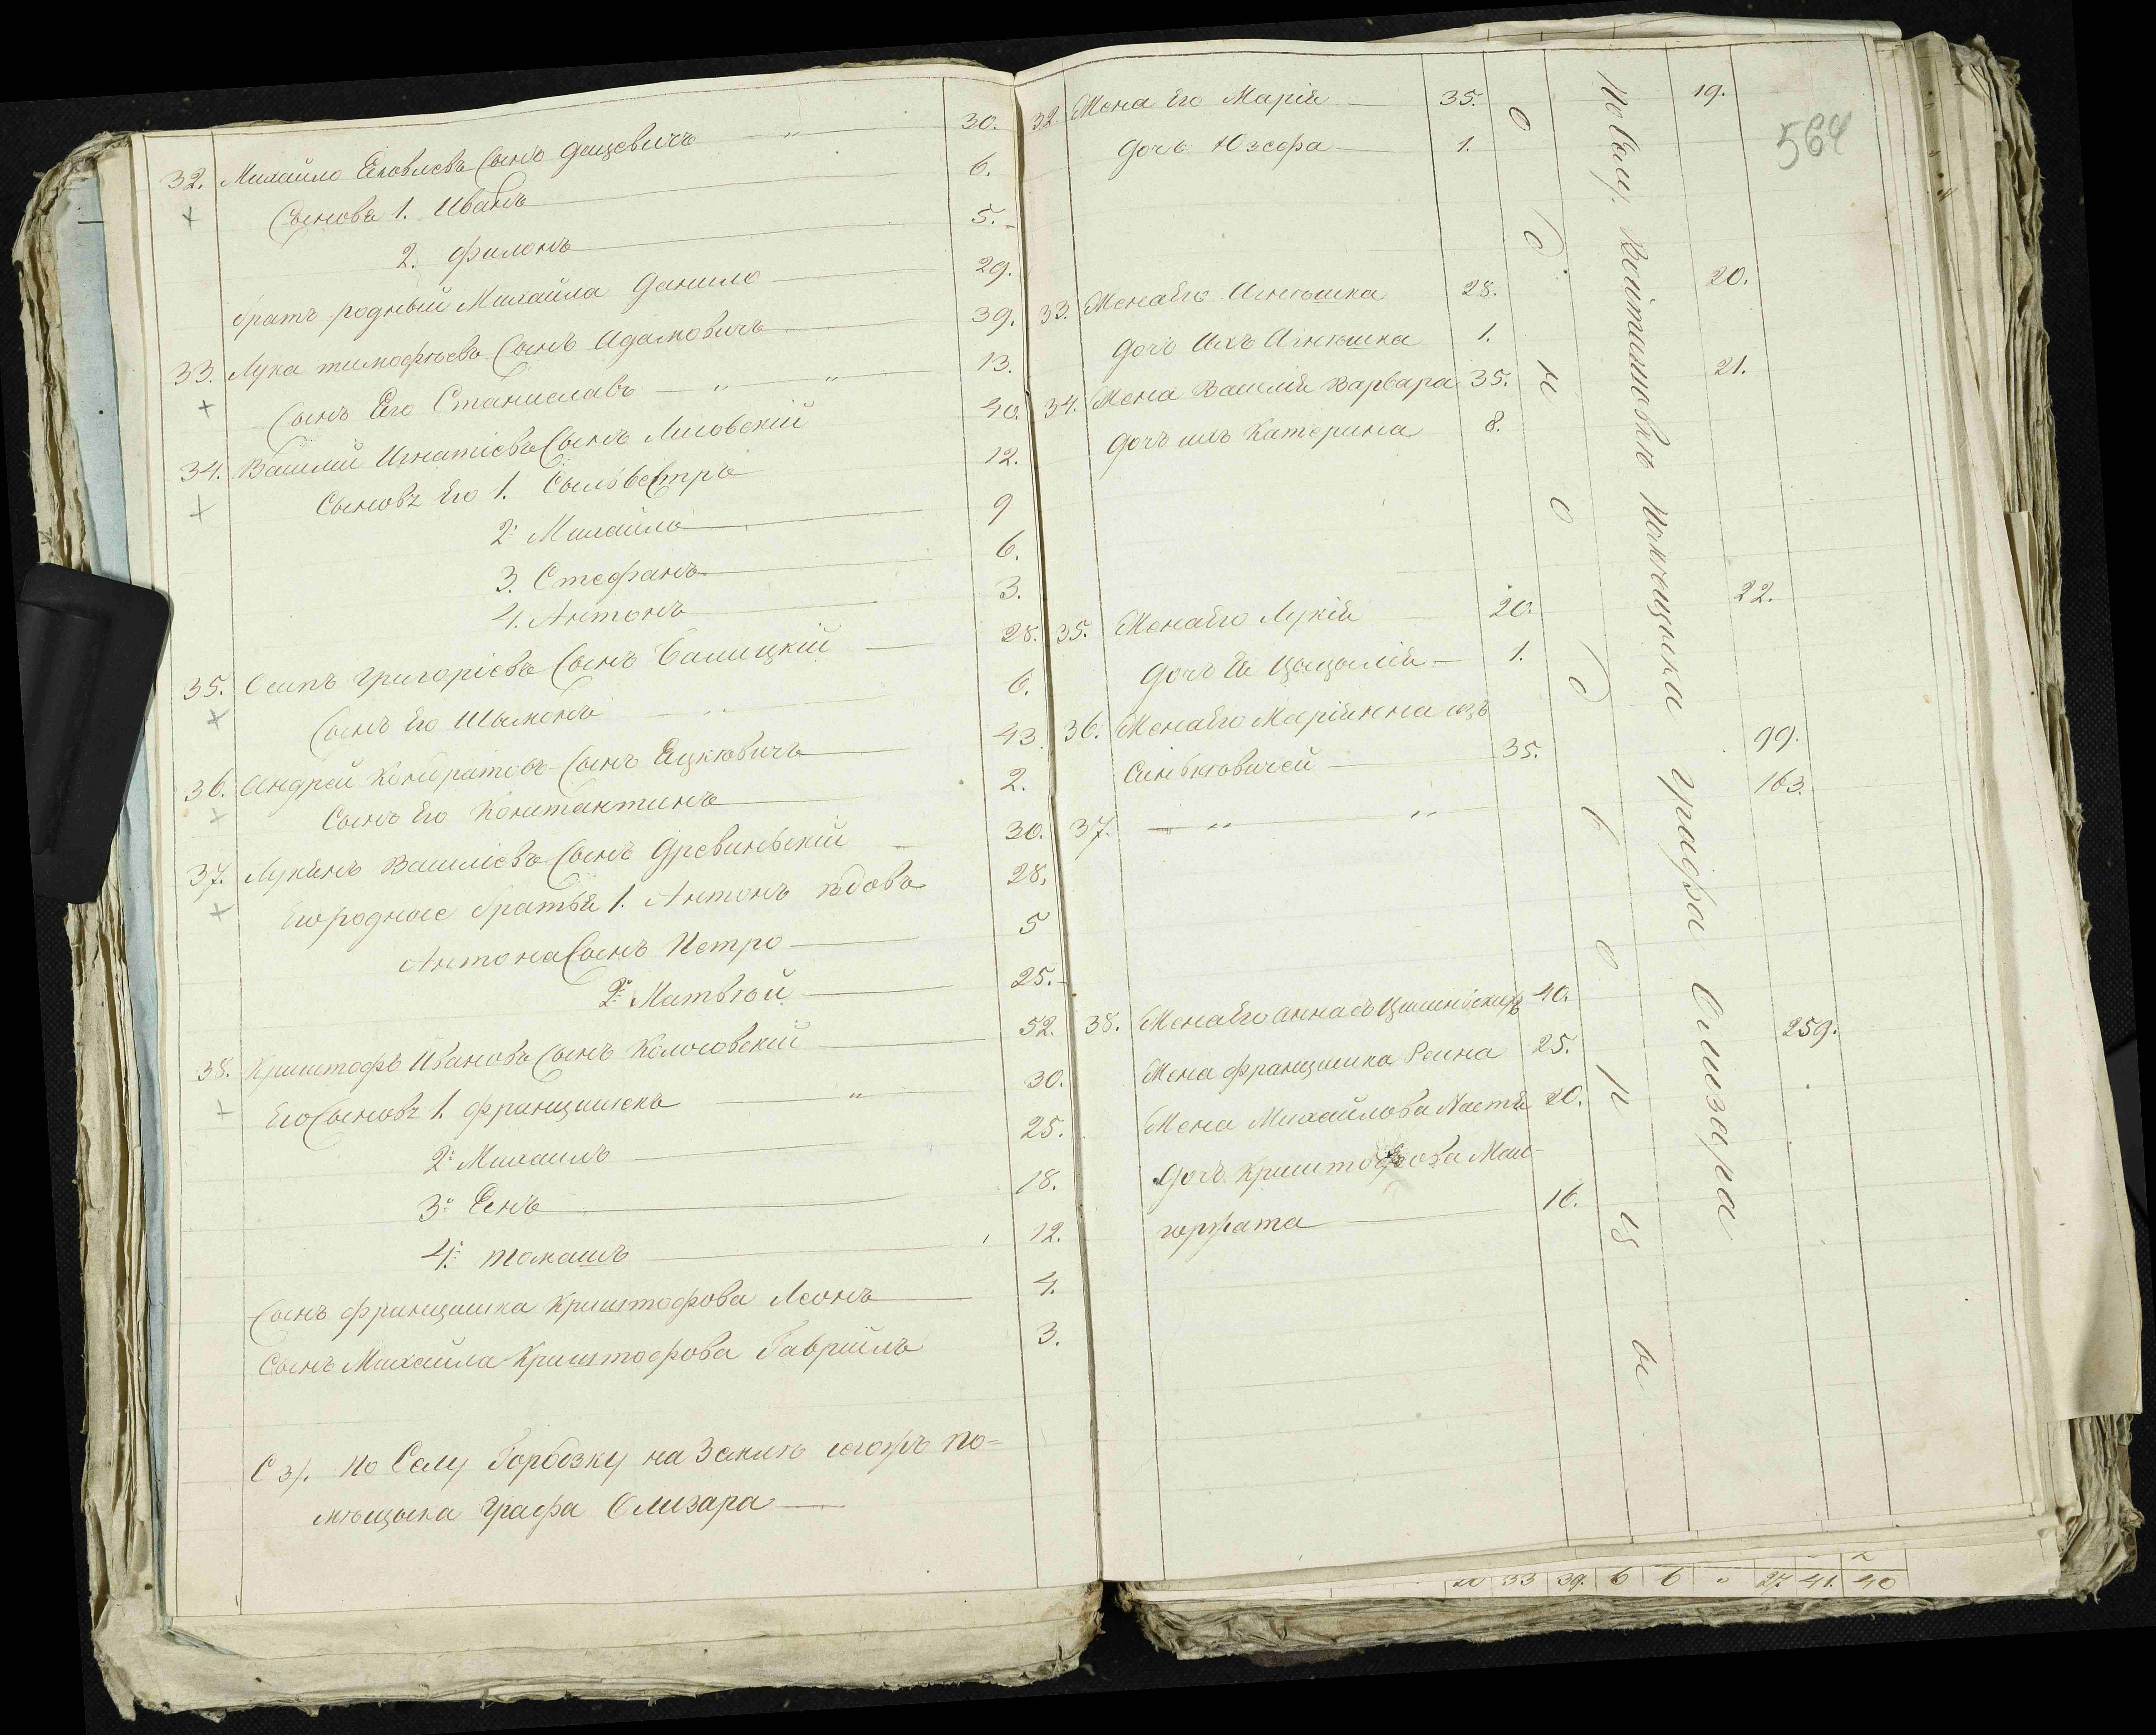 32. Михайло Яковлевъ Сынъ Дацевичъ — " — 30.
Сыновя 1. Иванъ — 6.
2. Филонъ — 5.
братъ родный Михайла Данило — 29.
33. Лука тимофѣевъ Сынъ Адамовичъ — 39.
Сынъ Его Станиславъ — " " — 13.
34. Василий Игнатіевъ Сынъ Лисовскій 40.
Сыновя Его 1. Сыльвестръ 12.
2. Михайло — 9
3. Стефанъ — 6.
4. Антонъ — 3.
35. Осипъ Григоріевъ Сынъ Балицкій — 28.
Сынъ Его Шымонъ — " — 6.
36. Андрей Кондратовъ Сынъ Яцкѣвичъ — 43.
Сынъ Его Константинъ — 2.
37. Лукянъ Василіевъ Сынъ Древиньскій — 30.
Его родные братья 1. Антонъ вдовъ 28.
Антона Сынъ Петро — 5
2. Матвѣй — 25.
38. Криштофъ Ивановъ Сынъ Колосовскій — 52.
Его Сыновя 1. Францишекъ — " — 30.
2. Михаилъ — 25.
3. Янъ — 18.
4. томашъ — 12.
Сынъ францишка Криштофова Леонъ — 4.
Сынъ Михайла Криштофова Гавріилъ 3.
С 3/. По Селу Горбозку на Землѣ тогожъ по=
мѣщыка Графа Олизара —
564
32. Жена Его Марія — 35. 19.
Дочь Юзефа — 1.
33. Жена Его Агнѣшка 28. 20.
Дочь Ихъ Агнѣшка 1.
34. Жена Василія Варвара 35. 21.
Дочь ихъ Катерина 8.
35. Жена Его Лукія 20. 22.
Дочь Ея Цыцылія — 1.
36. Жена Его Маріянна изъ
Синькѣвичей — 35. 99.
37. — " " 163.
38. Жена Его Анна съ 40. 259.
Жена францишка Реина 25.
Жена Михайлова Настя 20.
Дочь Криштофова Мал-
горжата — 16.
О д н о д в о р ц ы
По Селу помѣщыка Графа Олизара
20 33 39. 6 6 " 27. 41. 40